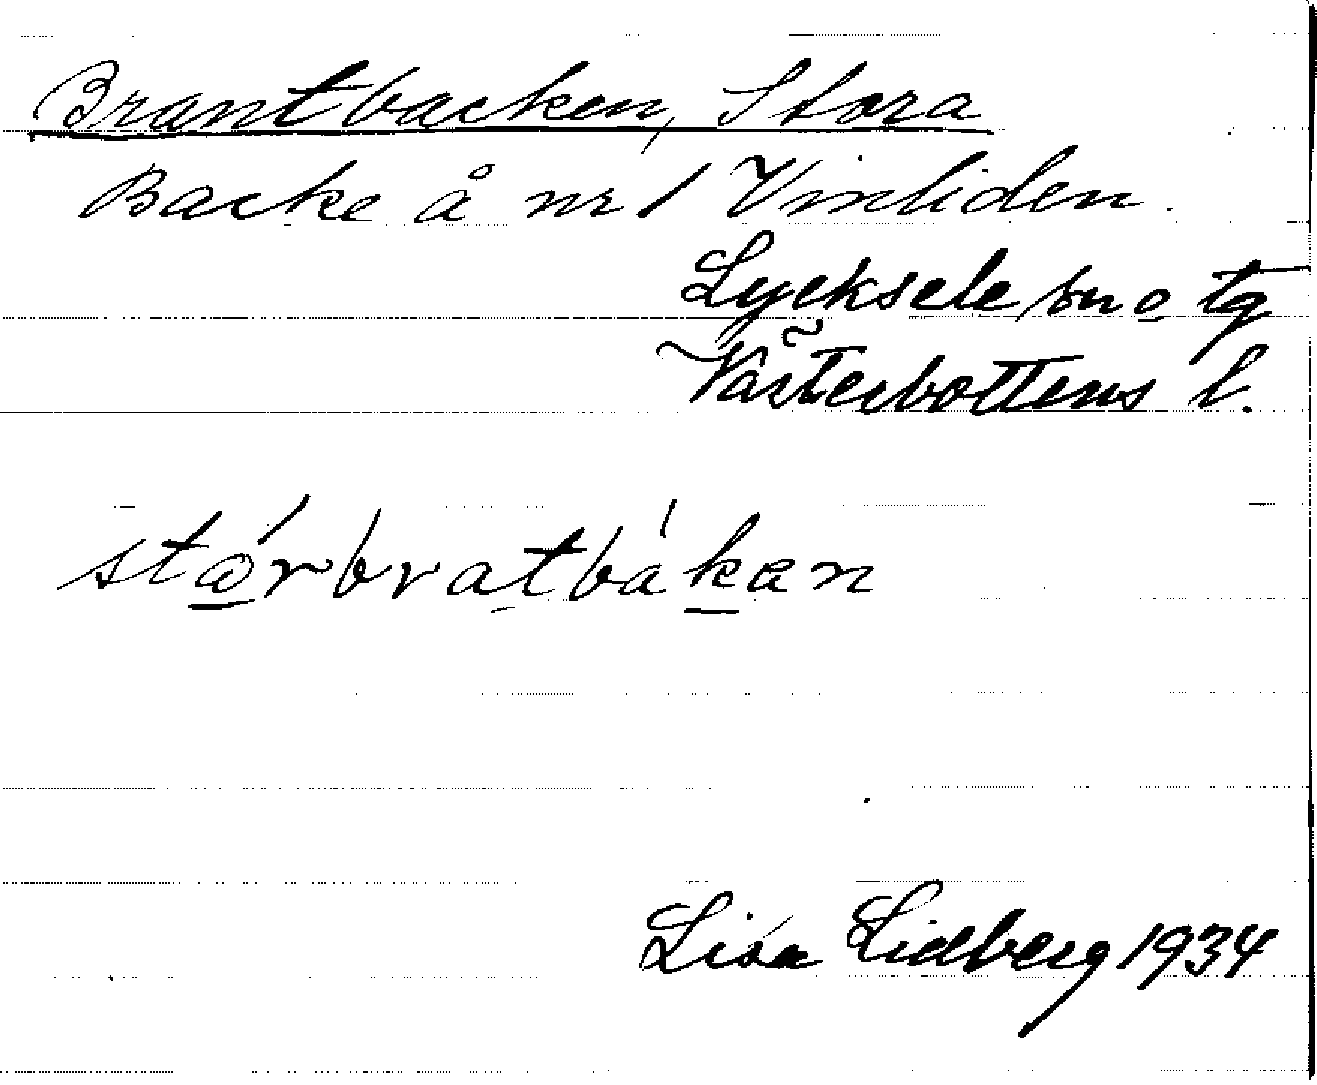 Brantbacken, Stora
Backe å nr 1 Vinliden.
Lycksele sn o tg
Västerbottens l.
stórbratbákan
Lisa Lidberg 1934